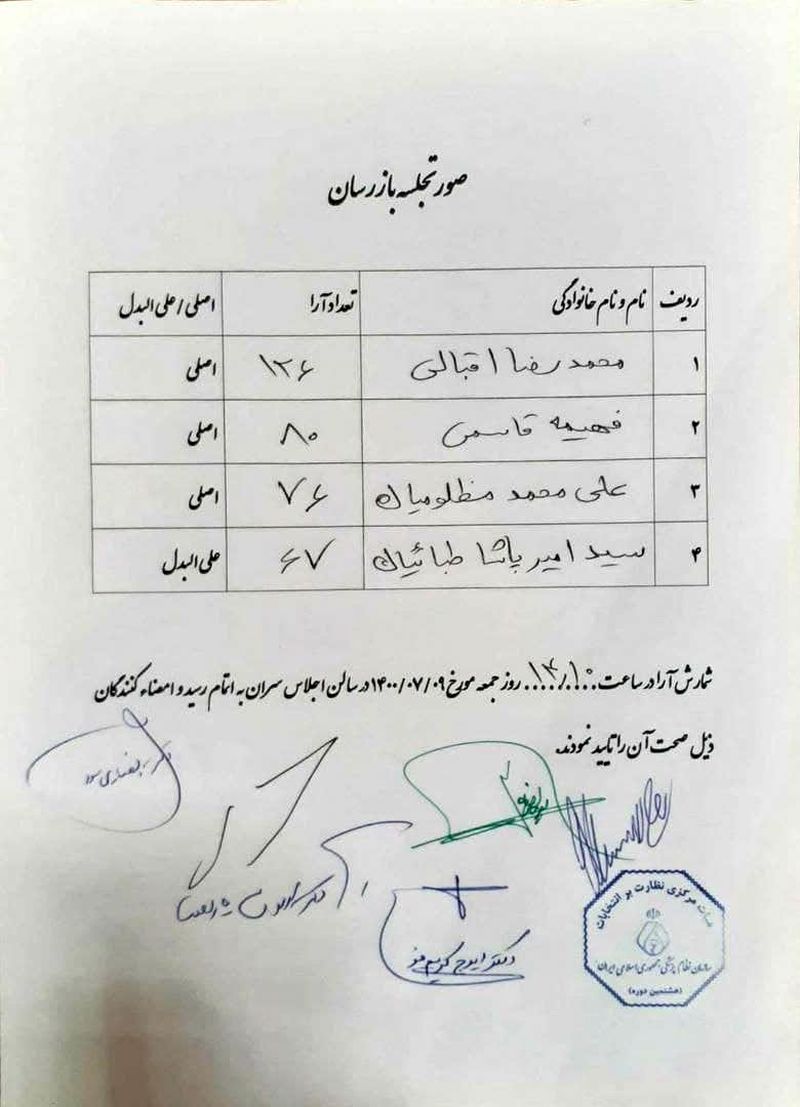 صورتجلسه بازرسان
ردیف نام و نام خانوادگی تعداد آرا اصلی / علی البدل
۱ محمدرضا اقبالی ۱۲۶ اصلی
۲ فهیمه قاسمی ۸۰ اصلی
۳ علی محمد مظلومیان ۷۶ اصلی
۴ سید امیر پاشا طبائیان ۶۷ علی البدل
شمارش آرا در ساعت ۱۳/۱۰ روز جمعه مورخ ۱۴۰۰/۰۷/۰۹ در سالن اجلاس سران به اتمام رسید و امضاء کنندگان
ذیل صحت آن را تایید نمودند.
دکتر
دکتر
دکتر ایرج
هیات مرکزی نظارت بر انتخابات
سازمان نظام پزشکی جمهوری اسلامی ایران
(هشتمین دوره)